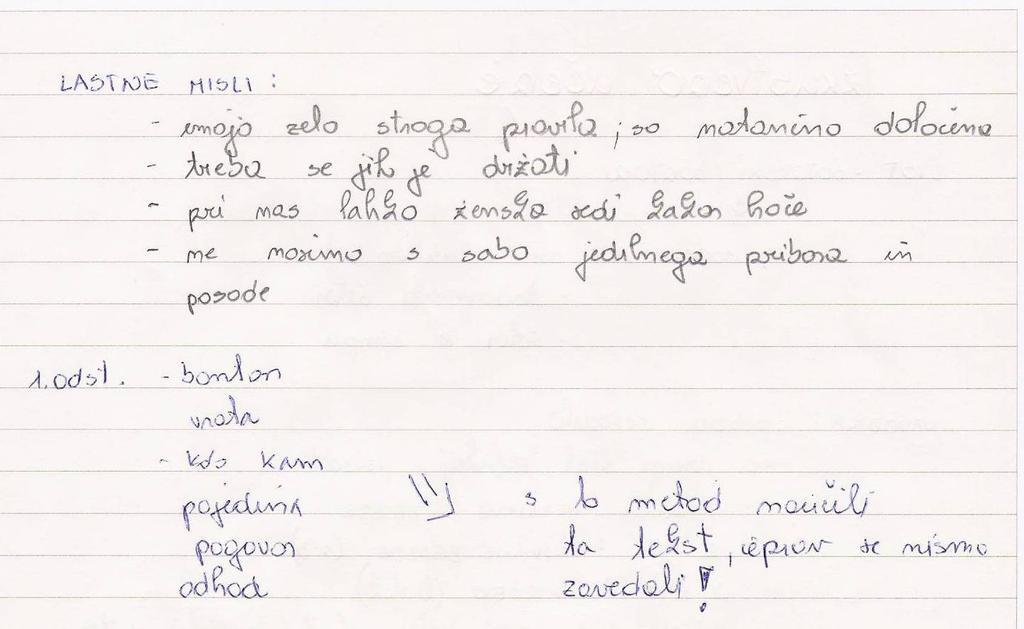 LASTNE MISLI :
- imajo zelo stroga pravila ; so natančno določena
- treba se jih je držati
- pri nas lahko ženska sedi kakor hoče
- ne nosimo s sabo jedilnega pribora in
posode
1. odst. - bonton
vrata
- kdo kam
pojedina s to metod naučili
pogovor ta tekst, čeprav se nismo
odhod zavedali !